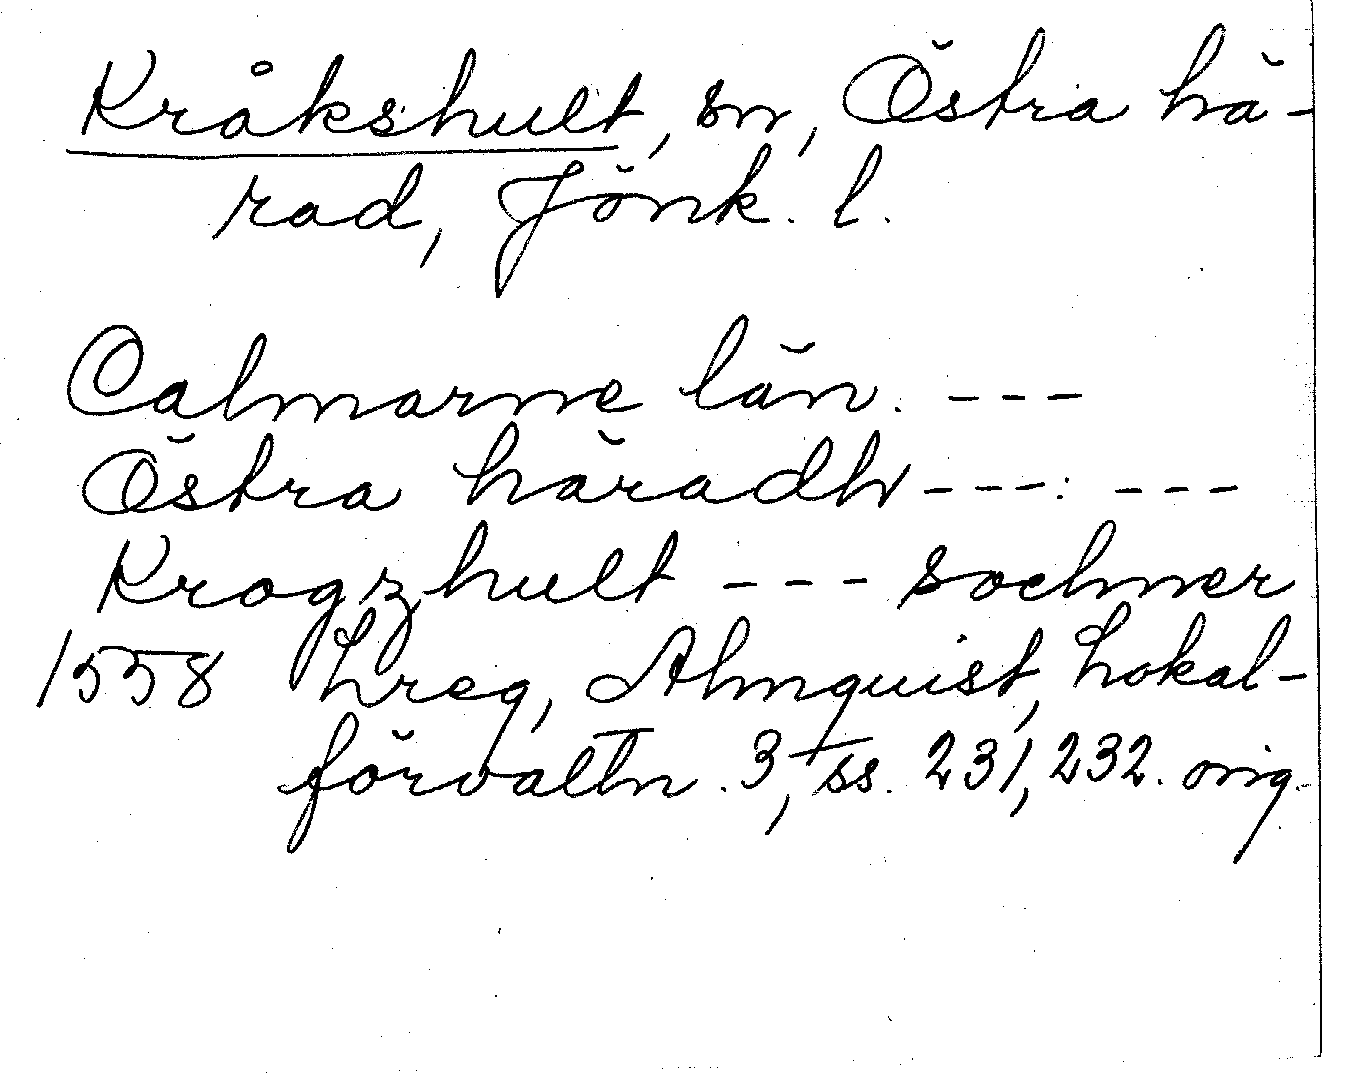 Kråkshult, sn, Östra hä-
rad, Jönk. l.
Calmarne län. ---
Östra häradh ---: ---
Krogzhult --- sochner
1558 Lreg, Almquist, Lokal-
förvaltn. 3, ss. 231, 232. orig.